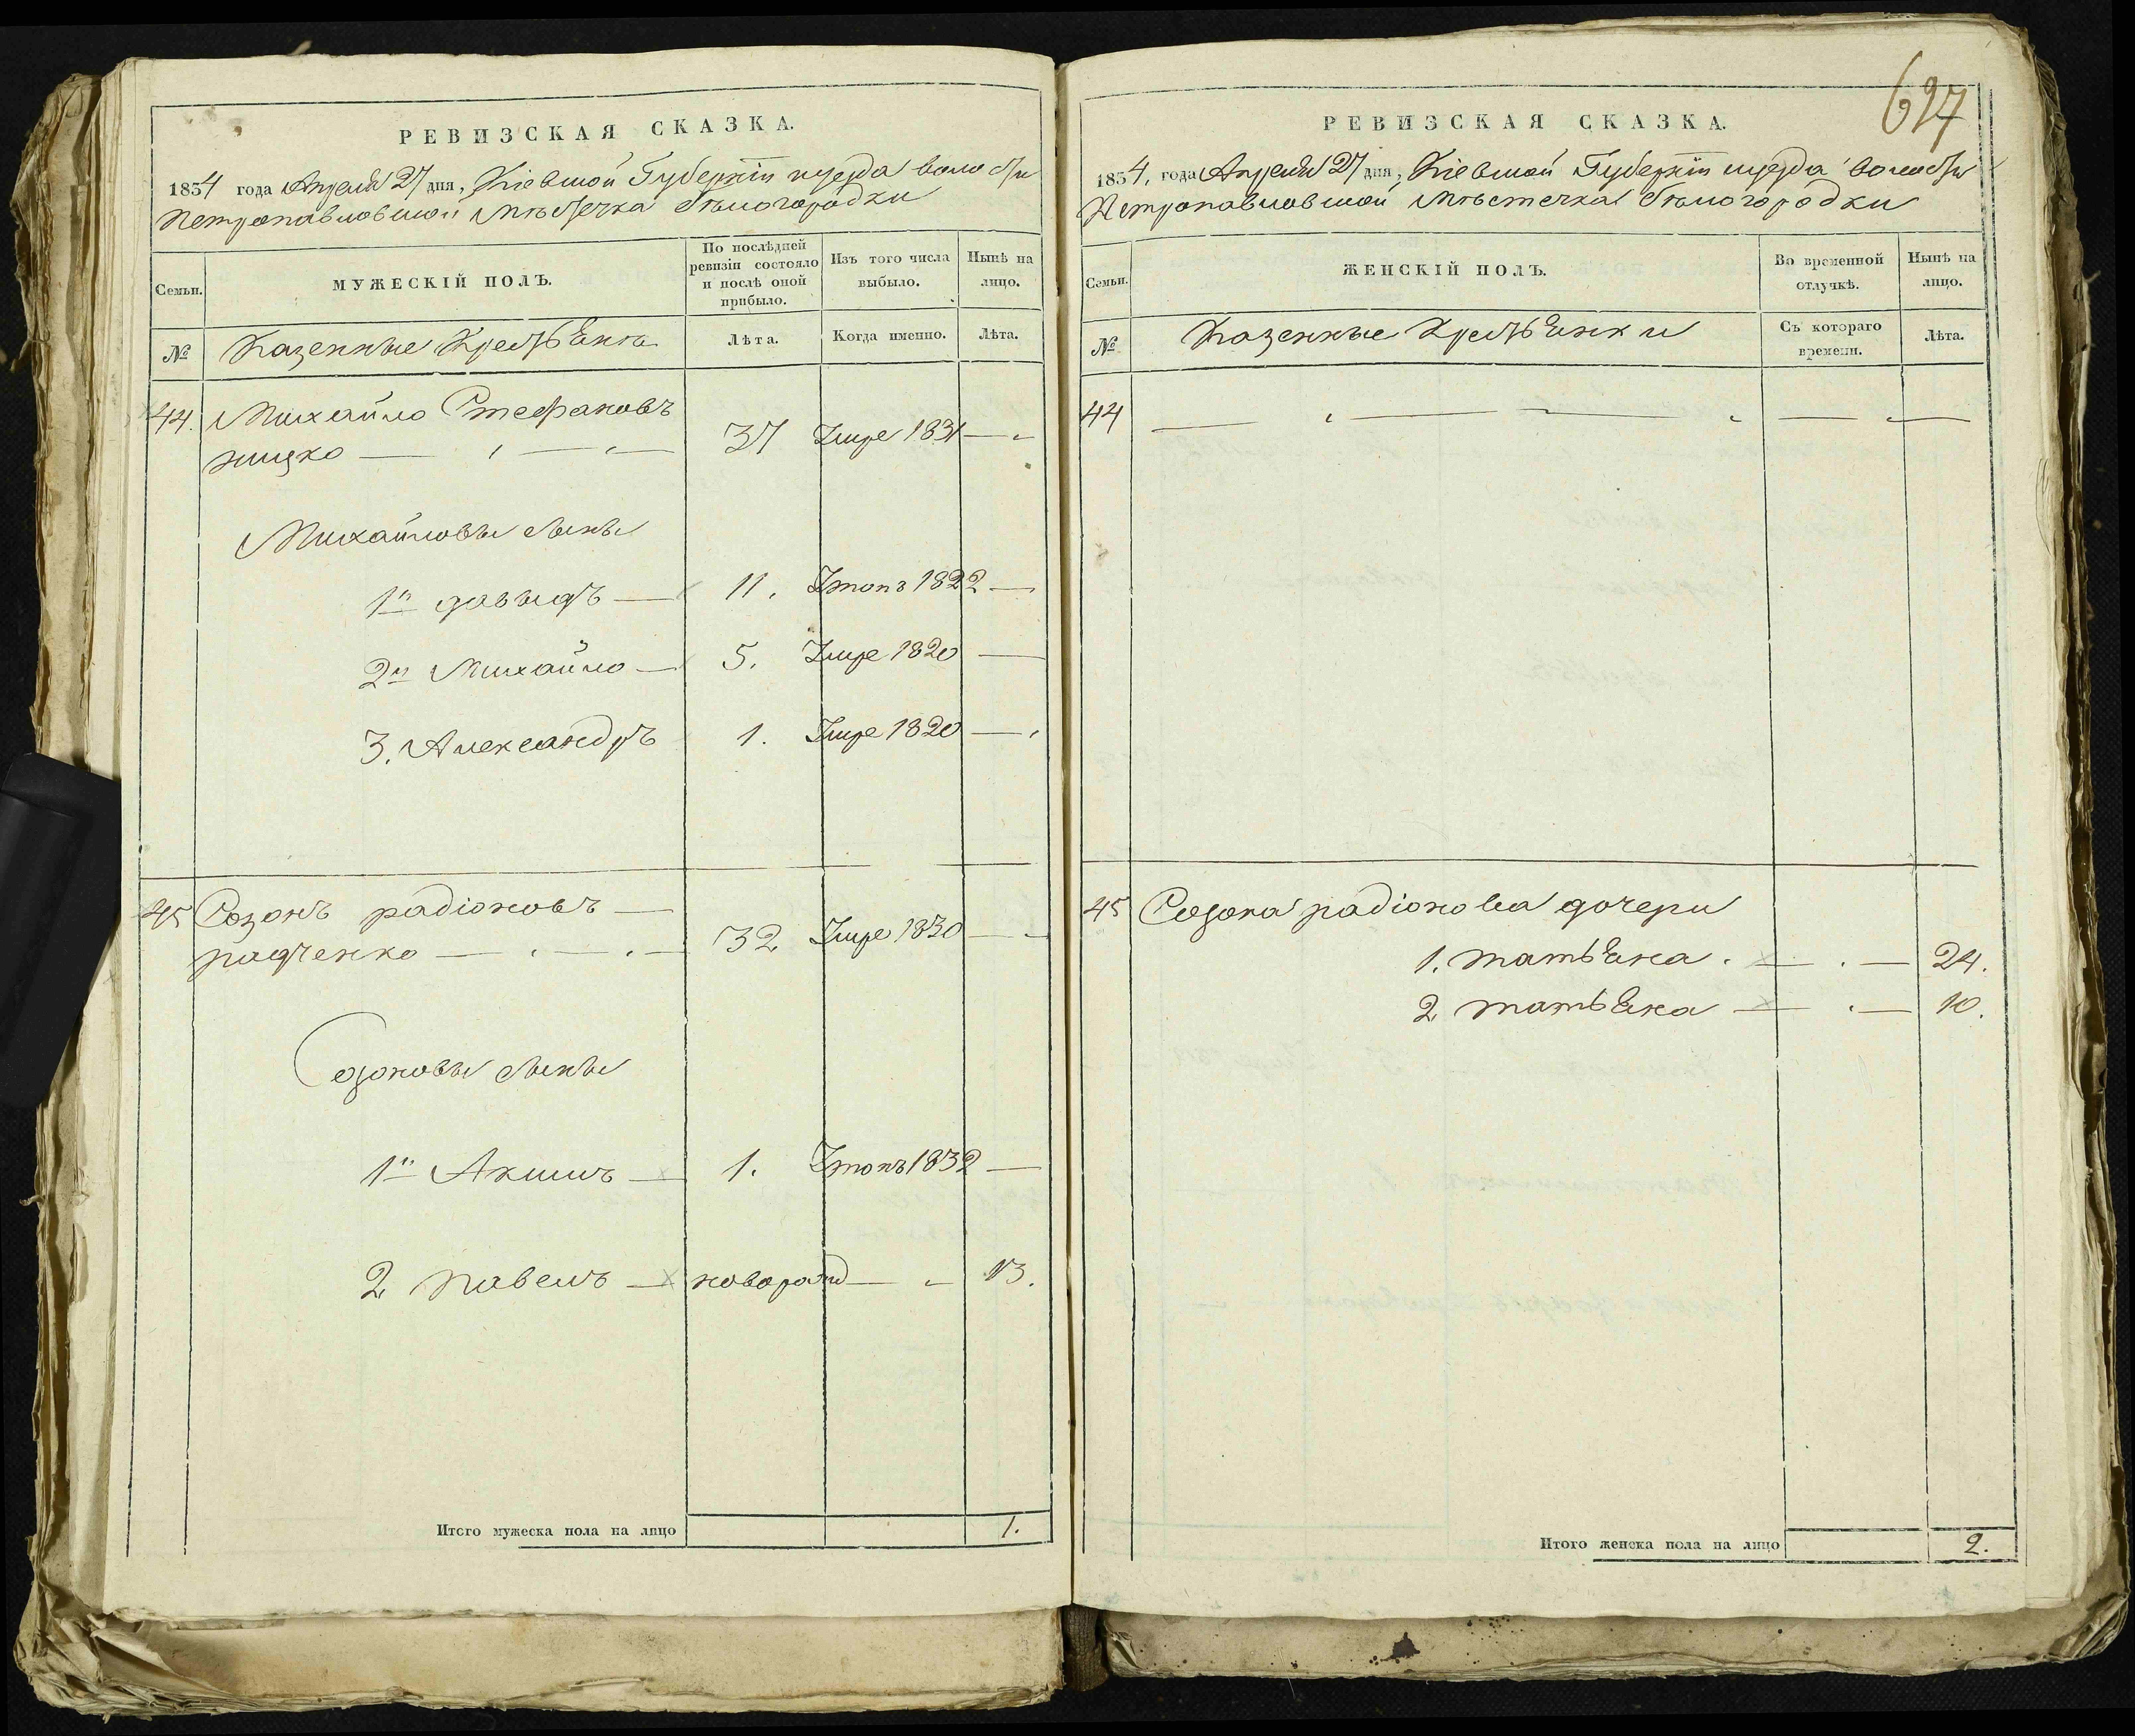 РЕВИЗСКАЯ СКАЗКА.
1834 года Апреля 27 дня, Кіевской Губерніи и уезда волости
Петропавловской Мѣстечка Бѣлогородки
Семьи.
МУЖЕСКІЙ ПОЛЪ.
По послѣдней ревизіи состояло и послѣ оной прибыло.
Изъ того числа выбыло.
Нынѣ на лицо.
№
Казенные Крестьяне
Лѣта.
Когда именно.
Лѣта.
44. Михайло Стефановъ
37 Умре 1831
Михайловы сыны
1й давыдъ — 11. Утопъ 1822 —
2й Михайло — 5. Умре 1820 —
3. Александръ 1. Умре 1820 —
45 Созонъ радіоновъ —
радченко — 32 Умре 1830 —
Созоновы сыны
1й Акимъ — 1. Утопъ 1832 —
2. Павелъ — новорожд — 13.
Итого мужеска пола на лицо 1.
627
РЕВИЗСКАЯ СКАЗКА.
1834, года Апреля 27 дня, Кіевской Губерніи и уезда волости
Петропавловской Мѣстечка Бѣлогородки
Семьи.
ЖЕНСКІЙ ПОЛЪ.
Во временной отлучкѣ.
Нынѣ на лицо.
№
Казенные Крестьянки
Съ котораго времени.
Лѣта.
44
45 Созона радіонова дочери
1. татьяна. — 24.
2. татьяна — 10.
Итого женска пола на лицо 2.